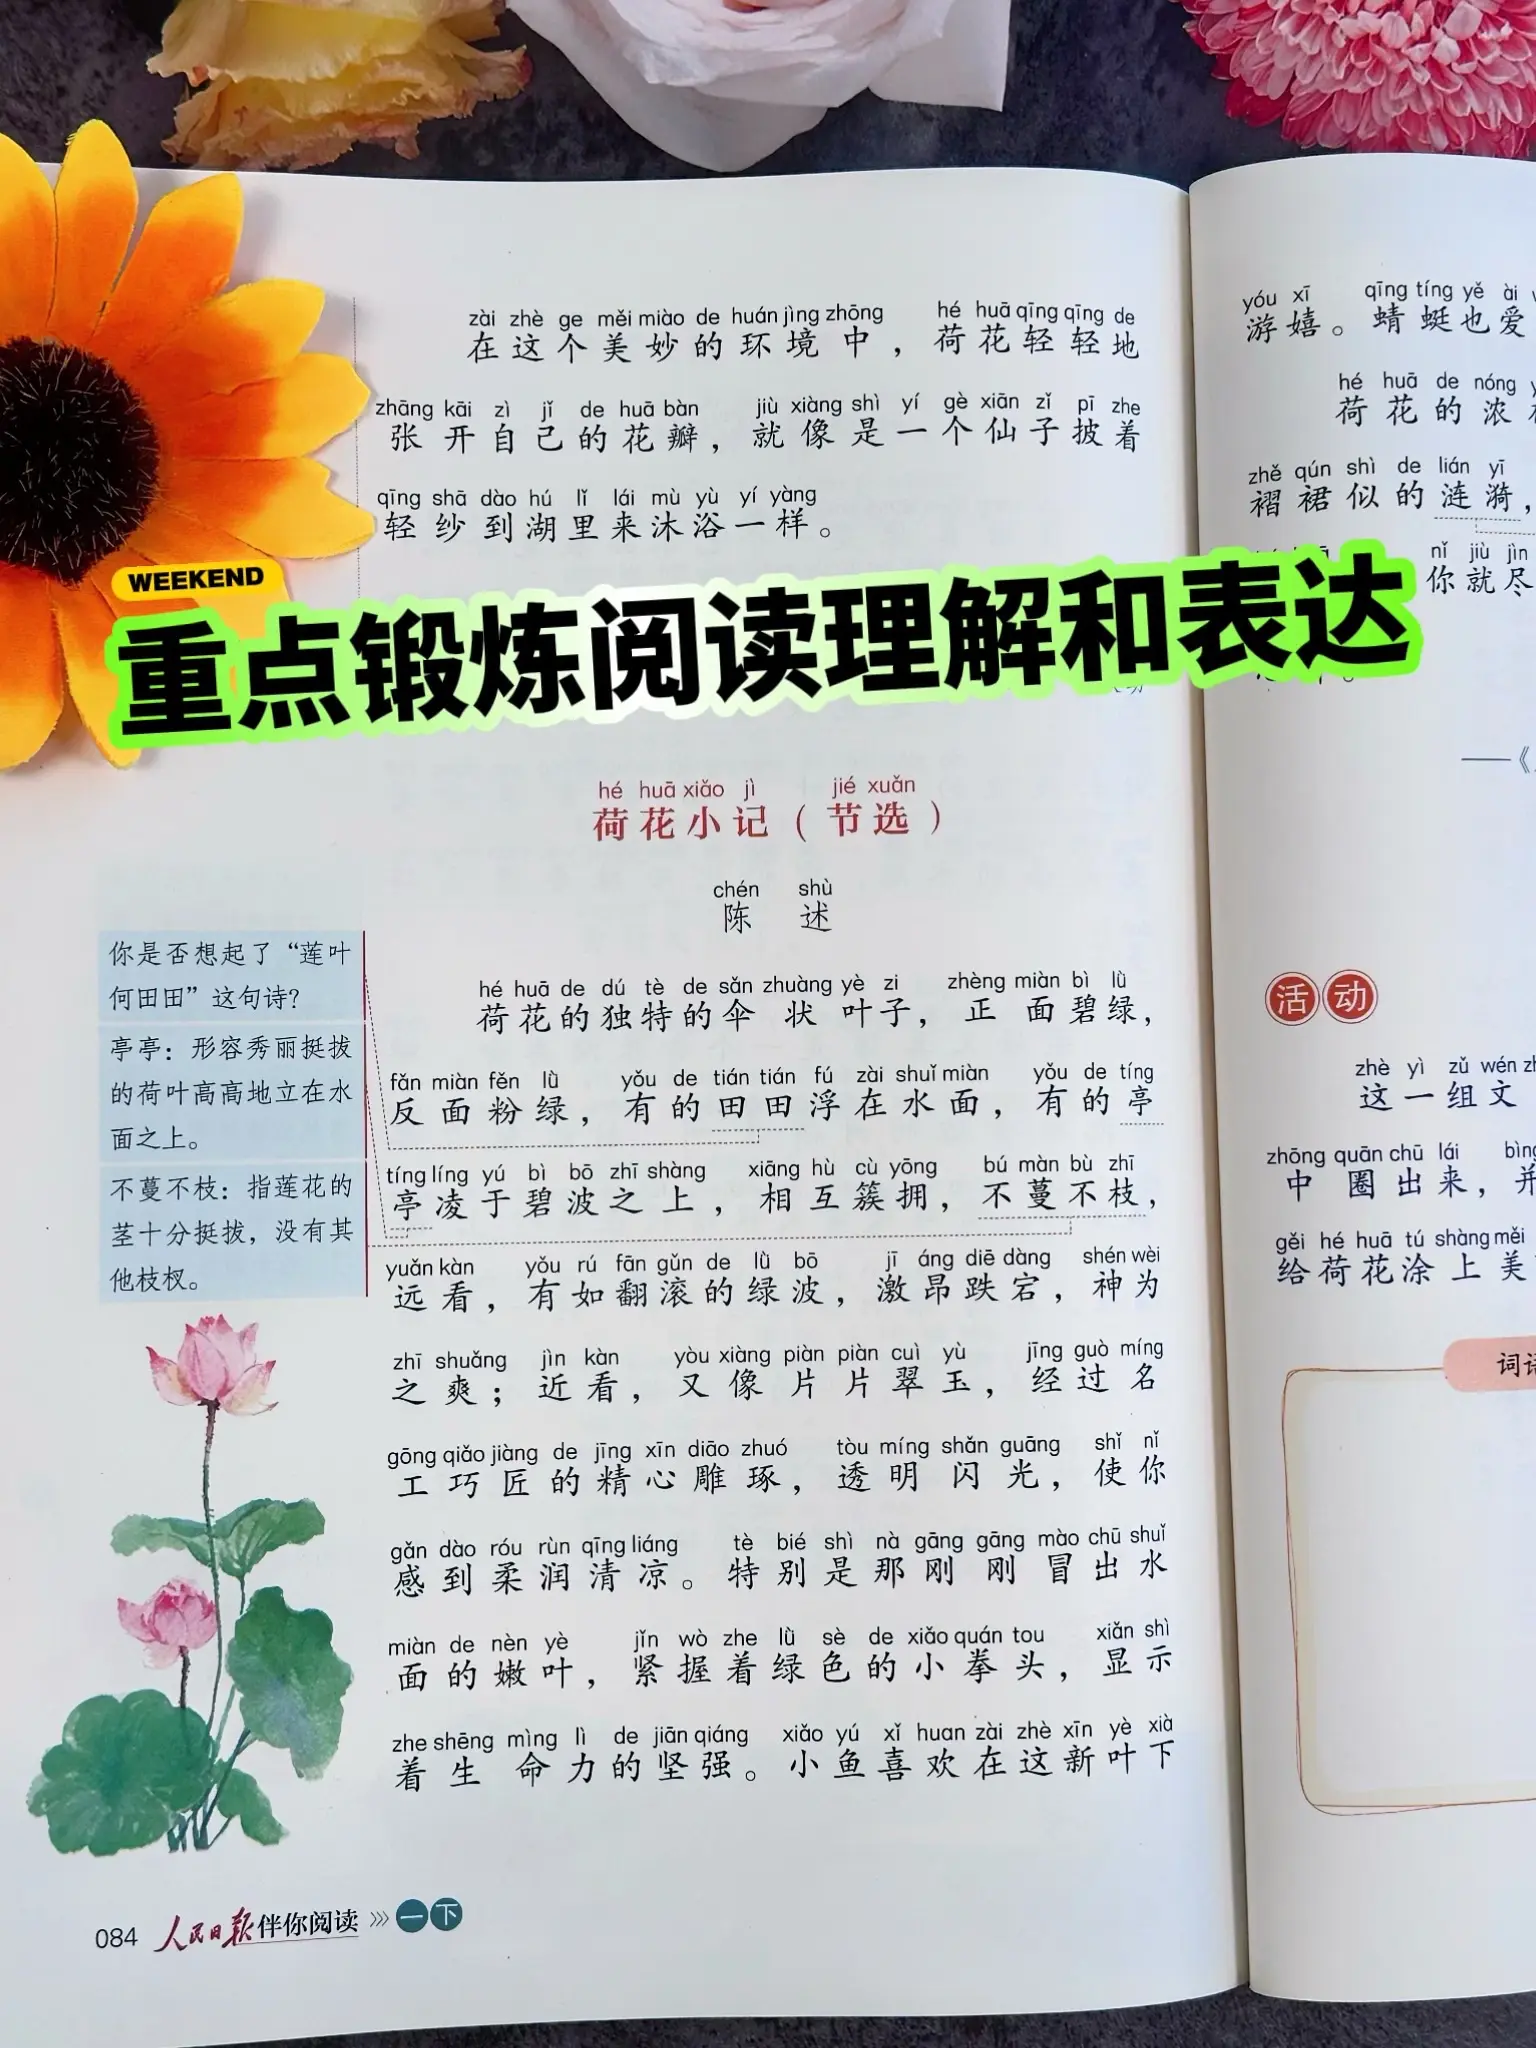 zài zhè ge měi miào de huán jìng zhōng hé huā qīng qīng de
在这个美妙的环境中，荷花轻轻地
zhāng kāi zì jǐ de huā bàn jiù xiàng shì yí gè xiān zǐ pī zhe
张开自己的花瓣，就像是一个仙子披着
qīng shā dào hú lǐ lái mù yù yí yàng
轻纱到湖里来沐浴一样。
WEEKEND
重点锻炼阅读理解和表达
hé huā xiǎo jì jié xuǎn
荷花小记（节选）
chén shù
陈述
你是否想起了“莲叶
何田田”这句诗？
亭亭：形容秀丽挺拔
的荷叶高高地立在水
面之上。
不蔓不枝：指莲花的
茎十分挺拔，没有其
他枝杈。
hé huā de dú tè de sǎn zhuàng yè zi zhèng miàn bì lǜ
荷花的独特的伞状叶子，正面碧绿，
fǎn miàn fěn lǜ yǒu de tián tián fú zài shuǐ miàn yǒu de tíng
反面粉绿，有的田田浮在水面，有的亭
tíng líng yú bì bō zhī shàng xiāng hù cù yōng bú màn bù zhī
亭凌于碧波之上，相互簇拥，不蔓不枝，
yuǎn kàn yǒu rú fān gǔn de lǜ bō jī áng diē dàng shén wèi
远看，有如翻滚的绿波，激昂跌宕，神为
zhī shuǎng jìn kàn yòu xiàng piàn piàn cuì yù jīng guò míng
之爽；近看，又像片片翠玉，经过名
gōng qiǎo jiàng de jīng xīn diāo zhuó tòu míng shǎn guāng shǐ nǐ
工巧匠的精心雕琢，透明闪光，使你
gǎn dào róu rùn qīng liáng tè bié shì nà gāng gāng mào chū shuǐ
感到柔润清凉。特别是那刚刚冒出水
miàn de nèn yè jǐn wò zhe lǜ sè de xiǎo quán tou xiǎn shì
面的嫩叶，紧握着绿色的小拳头，显示
zhe shēng mìng lì de jiān qiáng xiǎo yú xǐ huan zài zhè xīn yè xià
着生命力的坚强。小鱼喜欢在这新叶下
084 人民日报伴你阅读 》》》 一下
yóu xī qīng tíng yě ài
游嬉。蜻蜓也爱
hé huā de nóng
荷花的浓
zhě qún shì de lián yī
褶裙似的涟漪，
nǐ jiù jìn
你就尽
——《
活动
zhè yì zǔ wén
这一组文
zhōng quān chū lái
中圈出来，并
gěi hé huā tú shàng měi
给荷花涂上美
词语